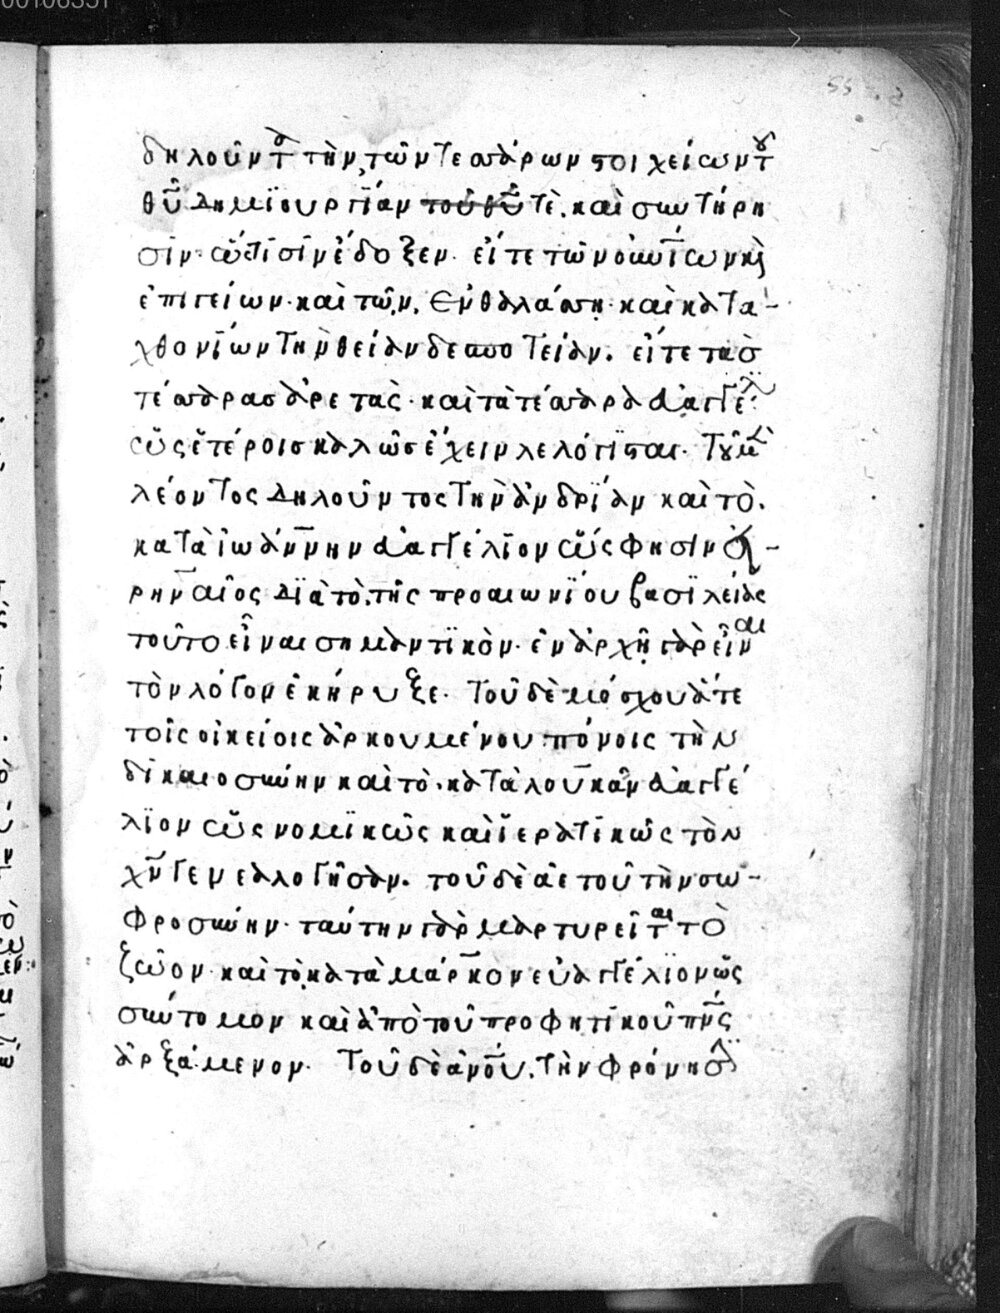 δηλοῦντ(ο) τὴν τῶν τεσσάρων στοιχείων τ(οῦ)
θῦ δημϊουργίαν τοῦ θῦ τὲ. καὶ συντήρη
σϊν· ὥς τισϊν ἔδοξεν· εἴτε τῶν οὐνίων κ(αὶ)
ἐπιγείων· καὶ τῶν. ἐν θαλάσση· καὶ κατα-
χθονΐων τὴν θείαν δεσποτείαν. εἴτε τὰσ
τέσσαρασ ἀρετὰς· καὶ τὰ τέσσαρα εὐαγγέλ
ὡς ἑτέροισ καλῶσ ἔχειν λελόγϊσται. Τοῦ μ(ὲν)
λέοντος δηλοῦντος τὴν ἀνδρΐαν καὶ τὸ.
κατὰ ἰωάννην εὐαγγέλϊον ὥς φησὶν ὁ εἰ-
ρηναῖος δϊὰ τὸ. τῆς προαιωνΐου βασϊλείας
τοῦτο εἶναι σημαντϊκὸν· ἐν ἀρχῆ γὰρ εἶν(αι)
τὸν λόγον ἐκήρυξε· Τοῦ δὲ μόσχου ἅτε
τοῖς οἰκείοις ἀρκουμένου πόνοις τὴν
δϊκαιοσύνην καὶ τὸ. κατὰ λουκᾶν εὐαγγέ
λϊον ὡς νομϊκῶς καὶ ἱερατϊκῶς τὸν
χν γενεαλογῆσαν. τοῦ δὲ ἀετοῦ τὴν σω-
φροσύνην· ταύτην γὰρ μαρτυρεῖτ(αι) τὸ
ζῶον· καὶ τὸ. κατὰ μάρκον εὐαγγέλϊον ὡς
σύντομον καὶ ἀπὸ τοῦ προφητϊκοῦ πνς
ἀρξάμενον· Τοῦ δὲ ἀνου. τὴν φρόνησ(ιν)